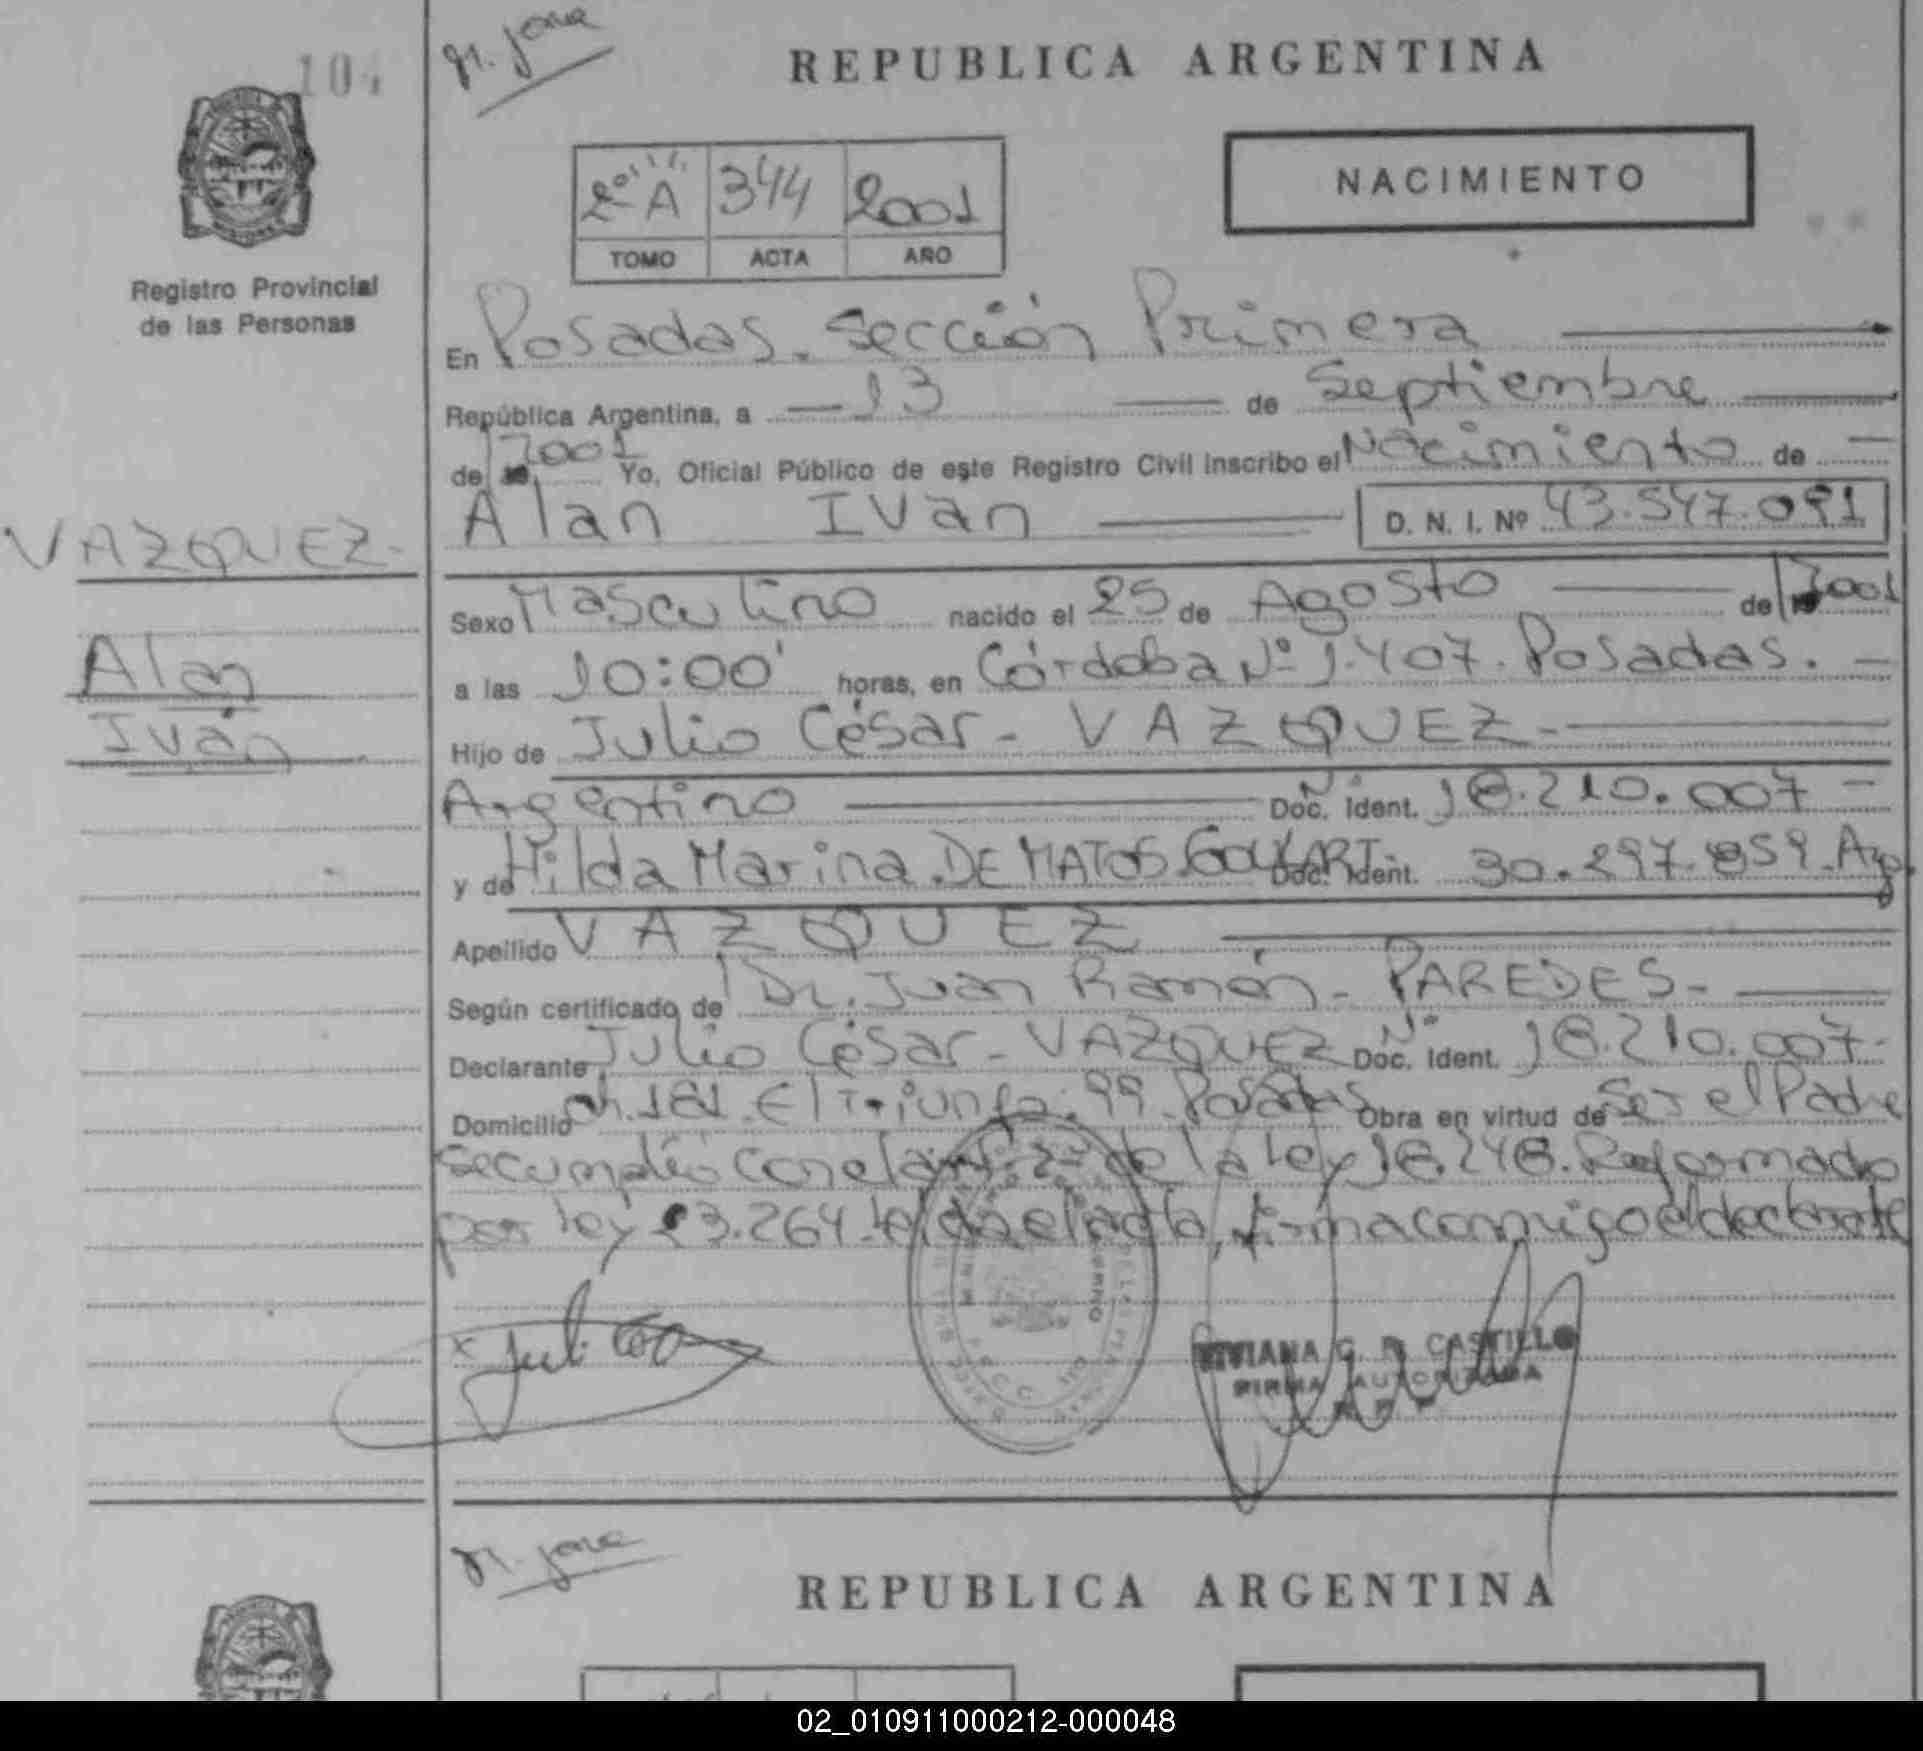 104
REPUBLICA ARGENTINA
2º A 344 2001
TOMO ACTA AÑO
NACIMIENTO
Registro Provincial
de las Personas
En Posadas. Sección Primera
República Argentina, a 13 de Septiembre
de 2001 Yo, Oficial Público de este Registro Civil inscribo el Nacimiento de
Alan Iván D. N. I. Nº 43.547.091
VAZQUEZ-
Alan
Iván
Sexo Masculino nacido el 25 de Agosto de 2001
a las 10:00' horas, en Córdoba Nº 1.407. Posadas.
Hijo de Julio César - VAZQUEZ-
Argentino Doc. Ident. Nº 18.210.007
y de Hilda Marina. DE MATOS GOULART- Doc. Ident. 30.297.859. Arg.
Apellido VAZQUEZ
Según certificado de Dr. Juan Ramón - PAREDES-
Declarante Julio César - VAZQUEZ Doc. Ident. Nº 18.210.007-
Domicilio ch. 181. El Triunfo. 99. Posadas Obra en virtud de ser el Padre
Se cumplió con el art. 2º de la Ley 18.248. Reformado
por ley 23.264. leída el acta, firma conmigo el declarante
VIVIANA G. R. CASTILLO
FIRMA AUTORIZADA
REPUBLICA ARGENTINA
02_010911000212-000048